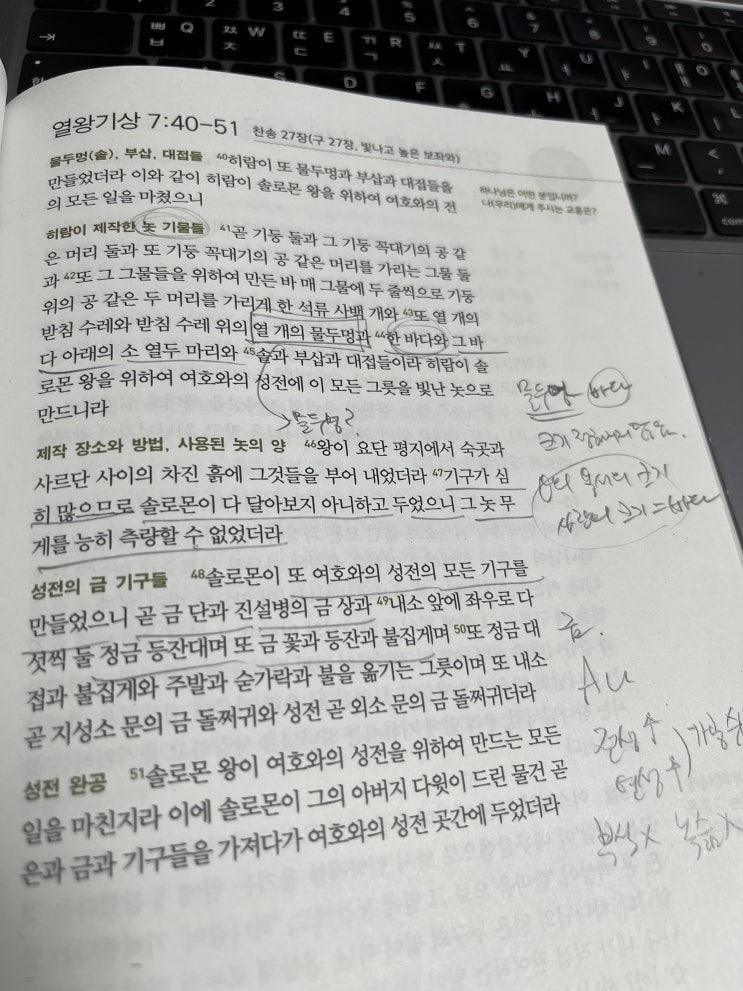 열왕기상 7:40-51 찬송 27장(구 27장, 빛나고 높은 보좌와)
물두멍(솥), 부삽, 대접들 40히람이 또 물두멍과 부삽과 대접들을
만들었더라 이와 같이 히람이 솔로몬 왕을 위하여 여호와의 전
의 모든 일을 마쳤으니
하나님은 어떤 분입니까?
나(우리)에게 주시는 교훈은?
히람이 제작한 놋 기물들 41곧 기둥 둘과 그 기둥 꼭대기의 공 같
은 머리 둘과 또 기둥 꼭대기의 공 같은 머리를 가리는 그물 둘
과 42또 그 그물들을 위하여 만든 바 매 그물에 두 줄씩으로 기둥
위의 공 같은 두 머리를 가리게 한 석류 사백 개와 43또 열 개의
받침 수레와 받침 수레 위의 열 개의 물두멍과 44한 바다와 그 바
다 아래의 소 열두 마리와 45솥과 부삽과 대접들이라 히람이 솔
로몬 왕을 위하여 여호와의 성전에 이 모든 그릇을 빛난 놋으로
만드니라
물두멍?
물두멍 바다
크기
크기
사람의 크기 = 바다
제작 장소와 방법, 사용된 놋의 양 46왕이 요단 평지에서 숙곳과
사르단 사이의 차진 흙에 그것들을 부어 내었더라 47기구가 심
히 많으므로 솔로몬이 다 달아보지 아니하고 두었으니 그 놋 무
게를 능히 측량할 수 없었더라
성전의 금 기구들 48솔로몬이 또 여호와의 성전의 모든 기구를
만들었으니 곧 금 단과 진설병의 금 상과 49내소 앞에 좌우로 다
섯씩 둘 정금 등잔대며 또 금 꽃과 등잔과 불집게며 50또 정금 대
접과 불집게와 주발과 숟가락과 불을 옮기는 그릇이며 또 내소
곧 지성소 문의 금 돌쩌귀와 성전 곧 외소 문의 금 돌쩌귀더라
금.
Au
전성↑
연성↑
부식X 녹슮X
성전 완공 51솔로몬 왕이 여호와의 성전을 위하여 만드는 모든
일을 마친지라 이에 솔로몬이 그의 아버지 다윗이 드린 물건 곧
은과 금과 기구들을 가져다가 여호와의 성전 곳간에 두었더라